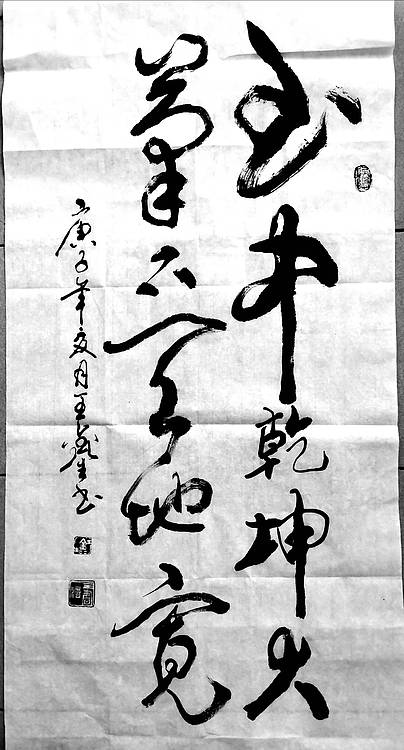 书中乾坤大
筆下天地寬
庚子年夏月王书